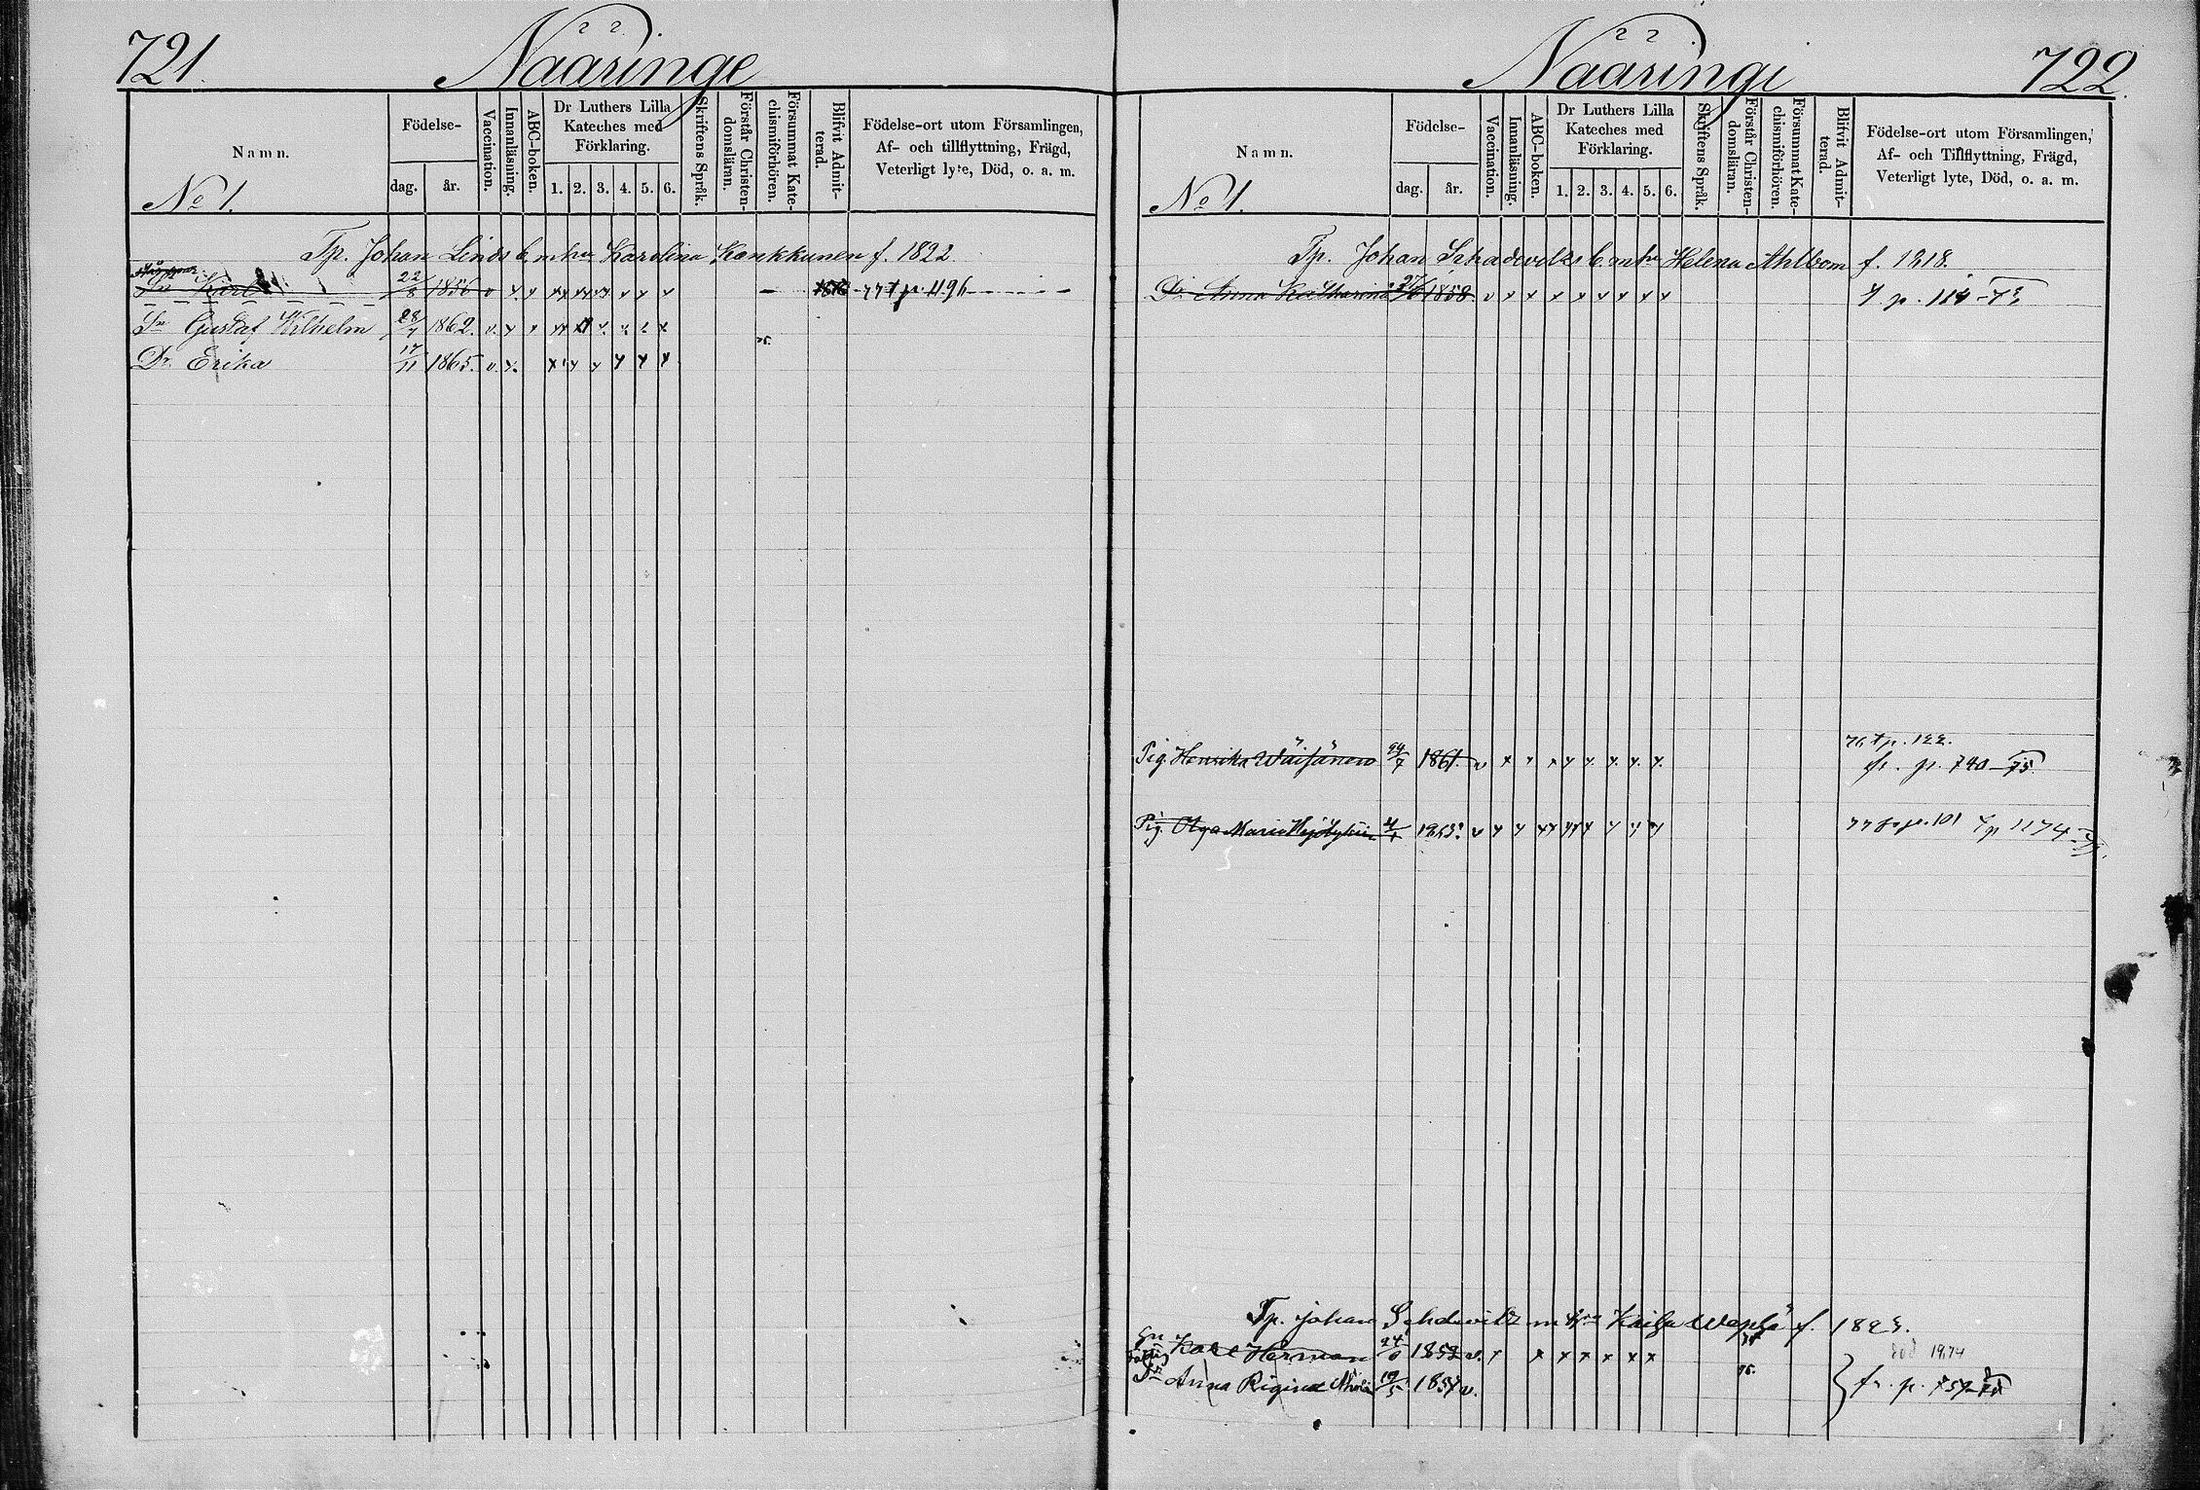 721.
Nääringe
Namn.
No 1.
Födelse-
dag.
år.
Vaccination.
Innanläsning.
ABC-boken.
Dr Luthers Lilla
Kateches med
Förklaring.
1. 2. 3. 4. 5. 6.
Skriftens Språk.
Förstår Christen-
domsläran.
Försummat Kate-
chismiförhören.
Blifvit Admit-
terad.
Födelse-ort utom Församlingen,
Af- och tillflyttning, Frägd,
Veterligt lyte, Död, o. a. m.
Tp. Johan Linds b. m. hu Karolina Kankkunen f. 1822.
Sn Karl 22/8 1856 v 77 t p. 1196
Sn Gustaf Wilhelm 28/7 1862. v.
Dr Erika 17/11 1865. v.
Nääringi
722.
Namn.
No 1.
Födelse-
dag.
år.
Vaccination.
Innanläsning.
ABC-boken.
Dr Luthers Lilla
Kateches med
Förklaring.
1. 2. 3. 4. 5. 6.
Skriftens Språk.
Förstår Christen-
domsläran.
Försummat Kate-
chismiförhören.
Blifvit Admit-
terad.
Födelse-ort utom Församlingen,
Af- och Tillflyttning, Frägd,
Veterligt lyte, Död, o. a. m.
Tp. Johan Schadevitz b. m hu Helena Ahlbom f. 1818.
Dr Anna Katharina 1858 v
76 t p. 122.
Pig. Henrika Wäisänen 24/7 1861. v fr. p. 740 - 75
Pig. Olga Maria v p. 101 p 1174
Tp. Johan m hu Kaisa f.
Sn Karl Herman 24/6 1852 v.
Dr Anna Regina 19/5 1857 v. fr. p. 757